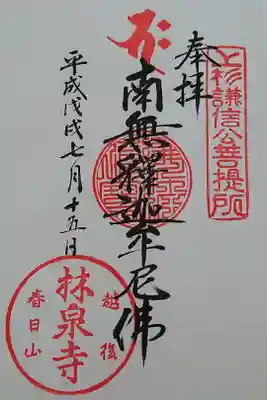 上杉謙信公菩提所
奉拝
南無釋迦牟尼佛
平成戊戌七月十五日
越後
林泉寺
春日山